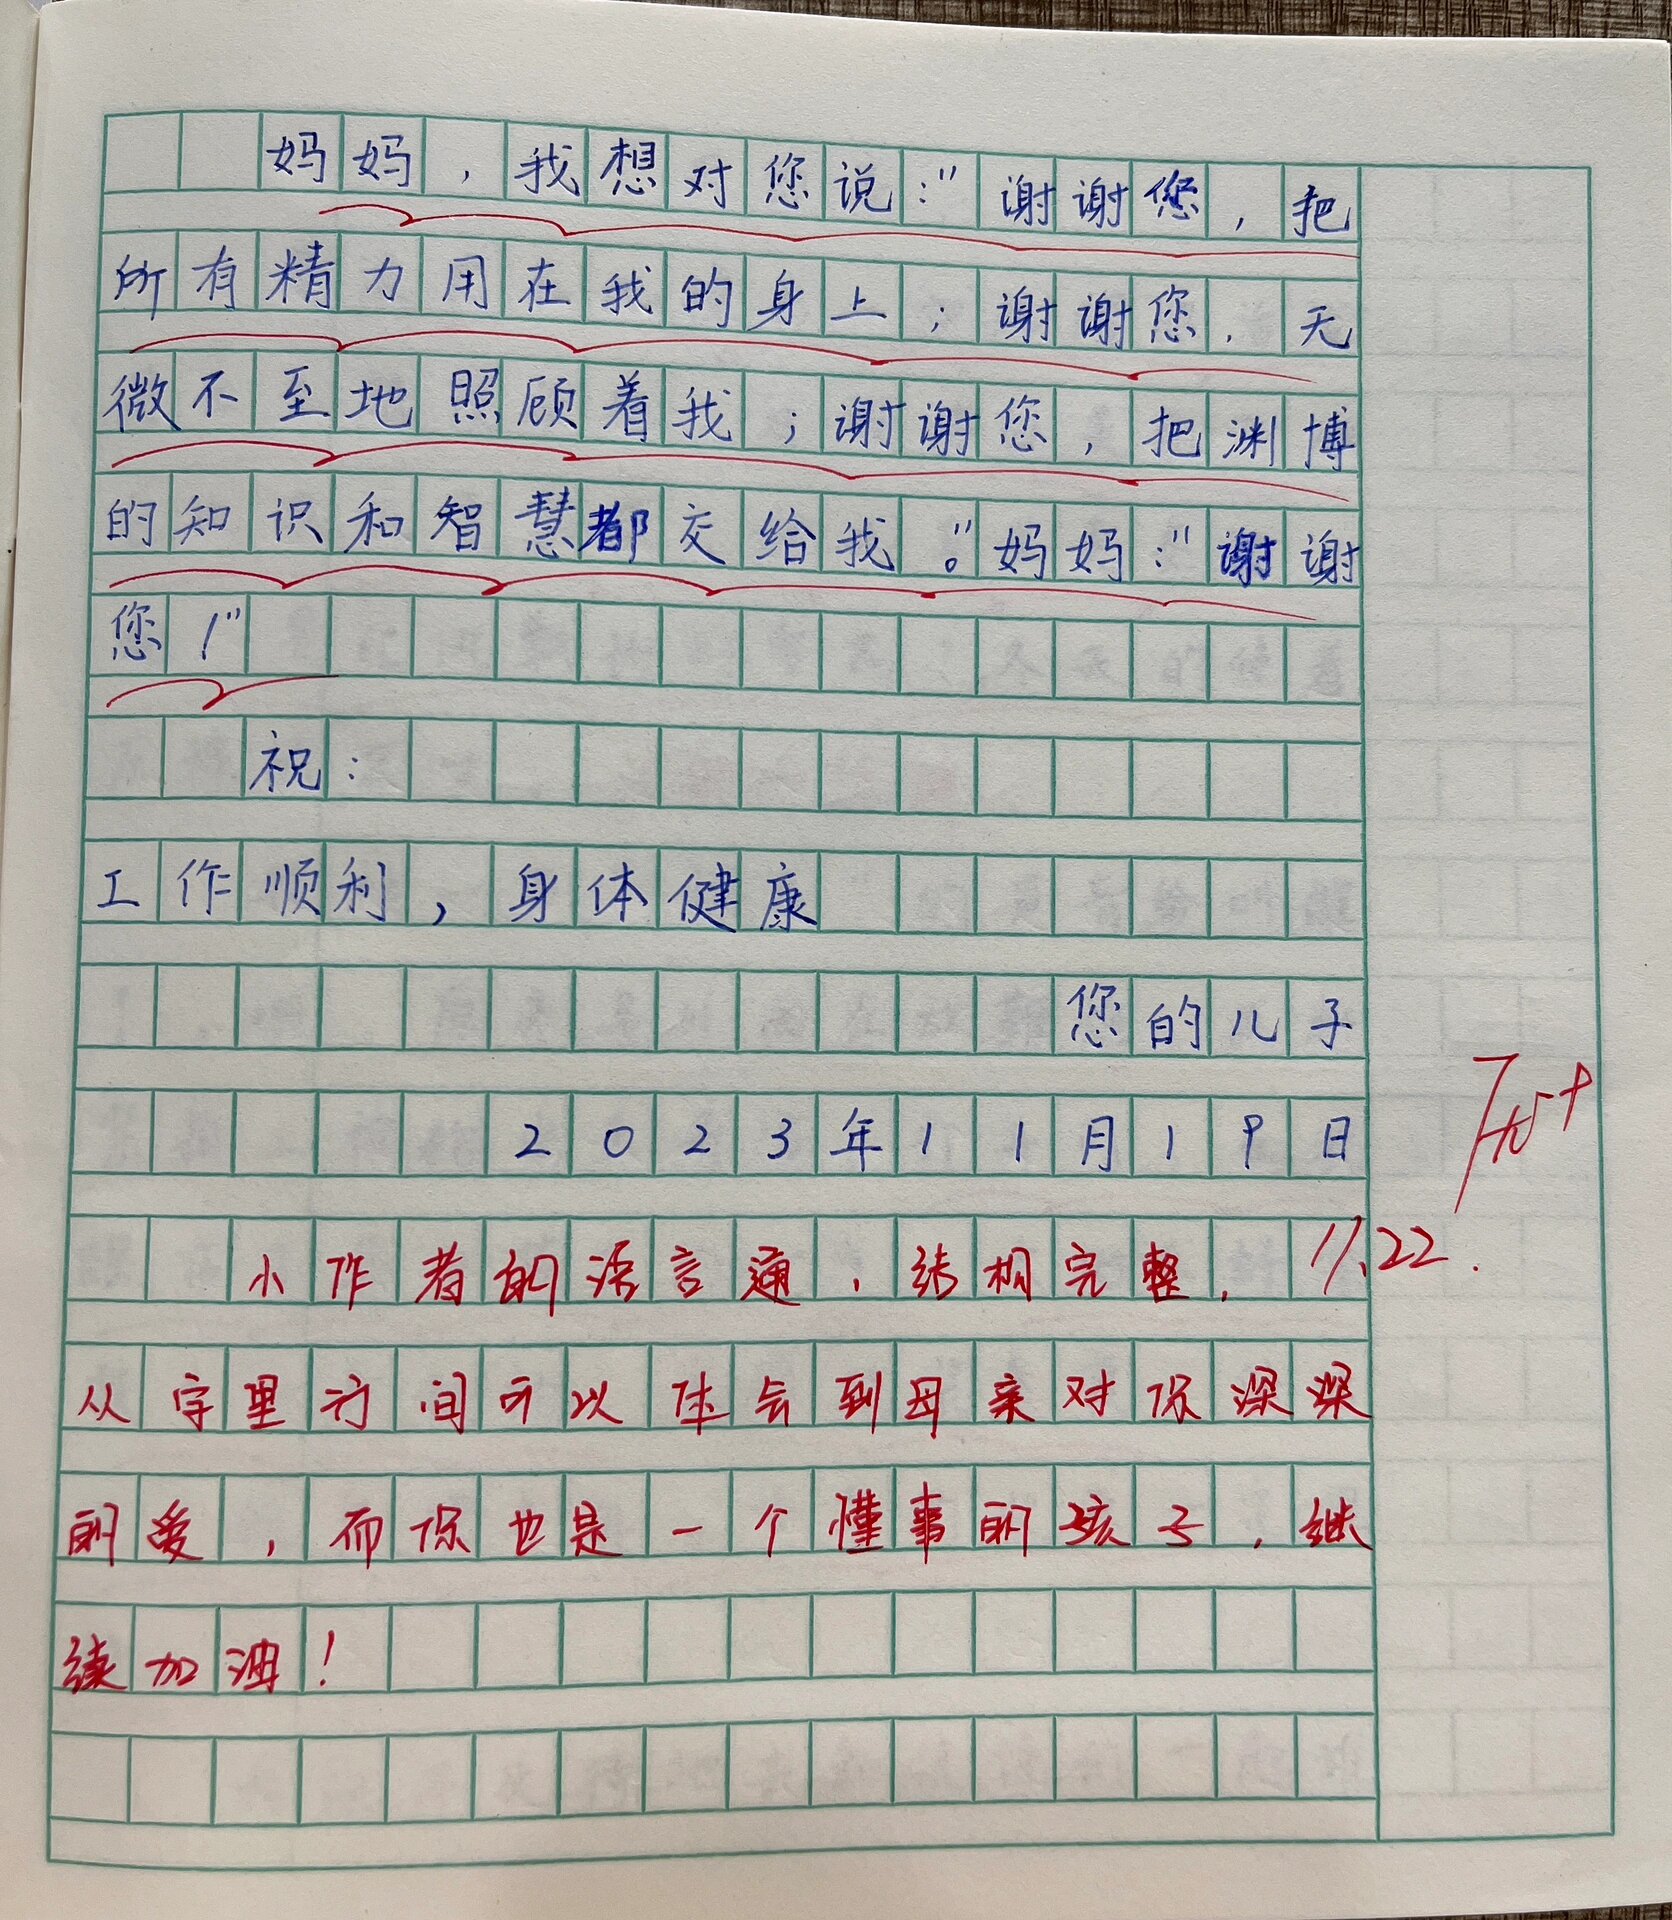 妈妈，我想对您说：“谢谢您，把
所有精力用在我的身上；谢谢您，无
微不至地照顾着我；谢谢您，把渊博
的知识和智慧都交给我。”妈妈：“谢谢
您！”
祝：
工作顺利，身体健康
您的儿子
2023年11月19日
小作者的语言通，结构完整， 11.22.
从字里行间可以体会到母亲对你深深
的爱，而你也是一个懂事的孩子，继
续加油！